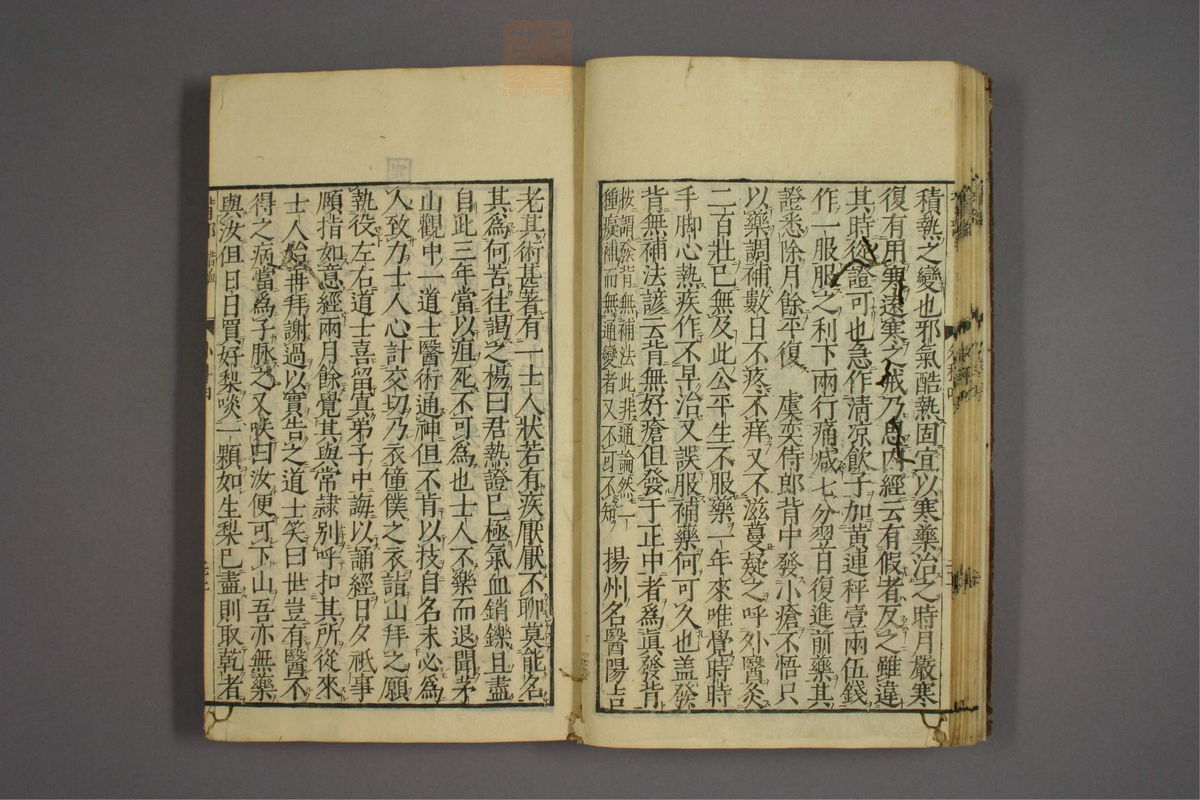 積熱之變也邪氣酷熱固宜以寒藥治之時月嚴寒
復有用寒遠寒之戒乃思內經云有假者反之雖違
其時從證可也急作清凉飲子如黃連秤壹兩伍錢
作一服服之利下兩行痛減七分翌日復進前藥其
證悉除月餘平復 虞奕侍郎背中發小瘡不悟只
以藥調補數日不疼不痒又不滋蔓疑之呼外醫灸
二百壯已無及此公平生不服藥一年來唯覺時時
手脚心熱疾作不早治又誤服補藥何可久也盖發
背無補法諺云背無好瘡但發于正中者爲眞發背
按謂發背無補法此非通論然一
種瘡補而無通變者又不可不知
揚州名醫陽吉
老其術甚著有一士人狀若有疾厭厭不聊莫能名
其爲何苦往謁之楊曰君熱證已極氣血銷鑠且盡
自此三年當以疽死不可爲也士人不樂而退聞茅
山觀中一道士醫術通神但不肯以技自名未必爲
人致力士人心計交切乃衣僮僕之衣詣山拜之願
執役左右道士喜留寘弟子中誨以誦經日夕祇事
願指如意經兩月餘覺其與常隷别呼扣其所從來
士人始再拜謝過以實告之道士笑曰世豈有醫不
得之病當爲子脉之又唉曰汝便可下山吾亦無藥
與汝但日日買好梨啖一顆如生梨已盡則取乾者